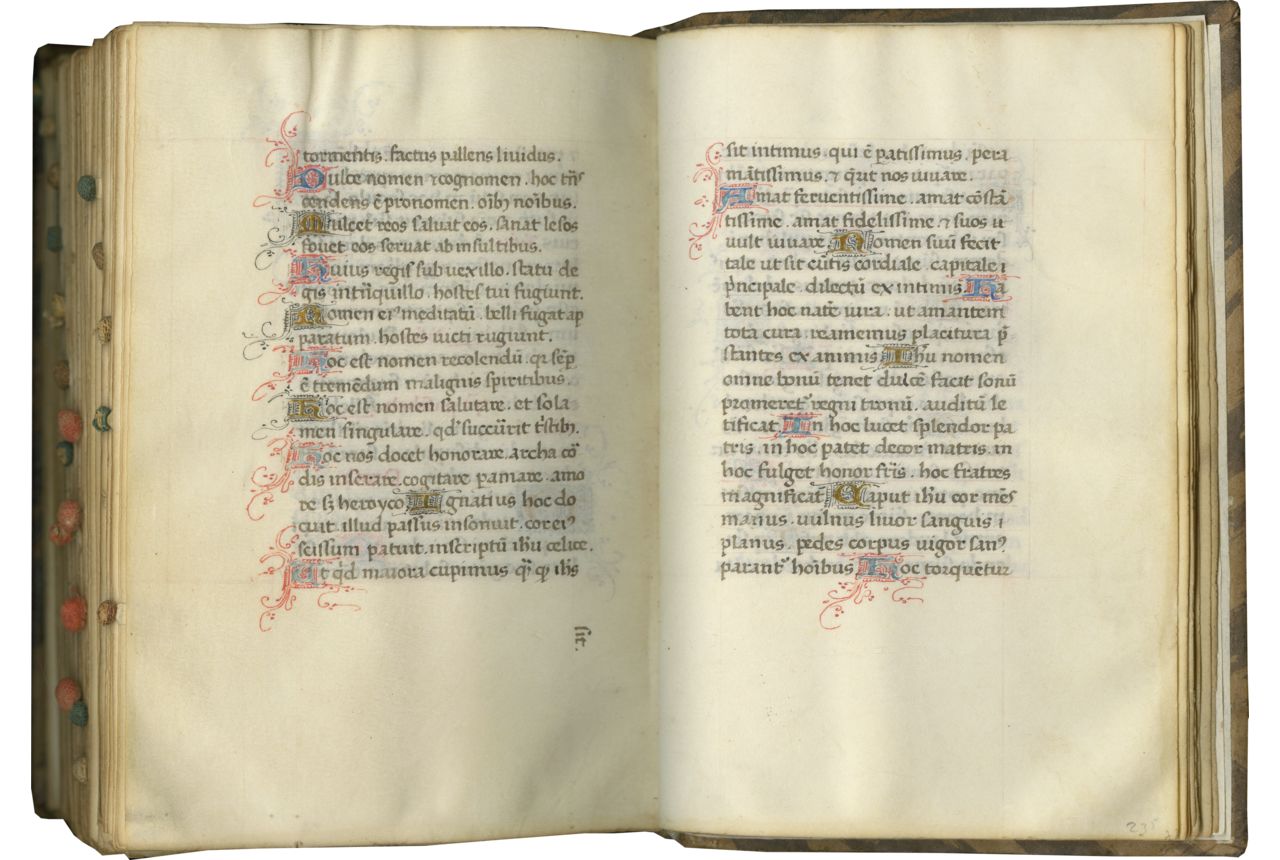 tormentis. factus pallens liuidus.
Dulce nomen ⁊ cognomen. hoc tn̄s
cendens ē pronomen. oibꝫ noibus.
Mulcet reos saluat eos. sanat lesos
fouet eos seruat ab insultibus.
Huius regis sub uexillo. statu de
gis intn̄quillo. hostes tui fugiunt.
Nomen eiꝰ meditatū. belli fugat ap
paratum. hostes uicti rugiunt.
Hoc est nomen recolendū. qi semp̄
ē tremēdum malignis spiritibus.
Hoc est nomen salutare. et sola
men singulare. qd̓ succurit tͥstibꝫ.
Hoc nos docet honorare. archa cō
dis inserare. cogitare pamare. amo
re sꝫ heroyco Ignatius hoc do
cuit. illud passus insonuit. cor eiꝰ
scissum patuit. inscriptū ihu celice.
At qd̓ maiora cupimus qͣ qꝫ ihs
sit.
sit intimus. qui ē patissimus. pera
mātissimus. ⁊ qͥ ut nos uiuare.
Amat feruentissime. amat cōstā
tissime. amat fidelissime. ⁊ suos u
uult uiuare. Nomen suū fecit
tale ut sit cūtis cordiale. capitale i
pͥncipale. dilectū ex intimis Ha
bent hoc nate iura. ut amantem
tota cura. reamemus placitura p̄
stantes ex animis Ihu nomen
omne bonū tenet dulcē facit sonū
promeret᷑ regni tronū. auditū le
tificat In hoc lucet splendor pa
tris. in hoc patet decor matris. in
hoc fulget honor fr̄is. hoc fratres
magnificat Caput ihu cor mēs
manus. uulnus liuor sanguis i
planus. pedes corpus uigor sanꝰ
parant᷑ hoibus Hoc torquētur
235